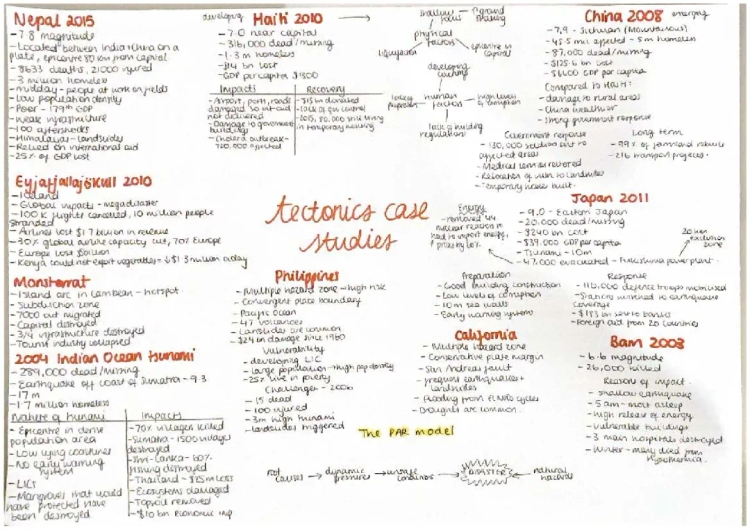 Nepal 2015
- 7.8 magnitude
- Located between India + China on a
plate, epicentre 80km from capital
- 8633 deaths, 21000 injured
- 3 million homeless
- midday - people at work on fields
- Low population density
- Poor - 179th GDP
- weak infrastructure
- 100 aftershocks
- Himalayas - landslides
- Relied on international aid
- 25% of GDP lost
Eyjafjallajökull 2010
- Iceland
- Global impacts - megadisaster
- 100 K flights cancelled, 10 million people
stranded
- Airlines lost $1.7 billion in revenue
- 30% global airline capacity cut, 70% Europe
- Europe lost $billion
- Kenya could not export vegetables - ↓$1.3 million a day
Montserrat
- Island arc in Caribbean - hotspot
- Subduction zone
- 7000 out migrated
- Capital destroyed
- 3/4 infrastructure destroyed
- Tourist industry collapsed
2004 Indian Ocean tsunami
- 289,000 dead/missing
- Earthquake off coast of Sumatra - 9.3
- 17m
- 1.7 million homeless
Nature of tsunami
- Epicentre in dense
population area
- Low lying coastlines
- No early warning
system
- LICs
- Mangroves that would
have protected have
been destroyed
Impacts
- 70% villages killed
- Sumatra - 1500 villages
destroyed
- Sri-Lanka - 60%
fishing destroyed
- Thailand - $25m loss
- Ecosystems damaged
- Topsoil removed
- $10 bn economic imp
developing
Haiti 2010
- 7.0 near capital
- 316,000 dead/missing
- 1.3 m homeless
- $14 bn lost
- GDP per capita $1500
Impacts
- Airport, port, roads
damaged so aid
not delivered
- Damage to government
buildings
- Cholera outbreak -
720,000 affected
Recovery
- $13 bn donated
- lack of gov control
- 2015, 80,000 still living
in temporary housing
shallow
focus
ground
shaking
physical
factors
liquefaction
epicentre in
capital
developing
country
human
factors
high levels of
corruption
lack of building
regulations
tectonics case
studies
Philippines
- Multiple hazard zone - high risk
- Convergent plate boundary
- Pacific Ocean
- 47 volcanoes
- Landslides are common
- $24 bn damage since 1960
Vulnerability
- developing LIC
- large population - high pop density
- 25% live in poverty
Challenges - 2006
- 15 dead
- 100 injured
- 3m high tsunami
- landslides triggered
The PAR model
root
causes → dynamic
pressures → unsafe
conditions → DISASTER ← natural
hazards
China 2008 emerging
- 7.9 - Sichuan (Mountainous)
- 45.5 mil affected - 5m homeless
- 87,000 dead/missing
- $125.6 bn lost
- $6600 GDP per capita
Compared to Haiti:
- damage to rural areas
- China wealthier
- strong government response
Government response
- 130,000 soldiers sent to
affected areas
- Medical services restored
- Relocation of
- Temporary houses built
Long term
- 99% of farmland rebuilt
- 216 transport projects
Japan 2011
- 9.0 - Eastern Japan
- 20,000 dead/missing
- $240 bn cost
- $39,000 GDP per capita
- Tsunami - 10m
- 47,000 evacuated - Fukushima power plant
20 km
exclusion
zone
Energy
- removed 44
nuclear reactors so
had to import energy,
↑ prices by 60%
Preparation
- Good building construction
- Low levels of corruption
- 10m sea walls
- Early warning systems
Response
- 110,000 defence troops mobilised
- Stations switched to earthquake
coverage
- $183 bn sent to banks
- Foreign aid from 20 countries
California
- Multiple hazard zone
- Conservative plate margin
- San Andreas fault
- frequent earthquakes +
landslides
- Flooding from El Nino cycles
- Droughts are common
Bam 2003
- 6.6 magnitude
- 26,000 killed
Reasons of impact
- shallow earthquake
- 5am - most asleep
- high release of energy
- vulnerable buildings
- 3 main hospitals destroyed
- Winter - many died from
hypothermia